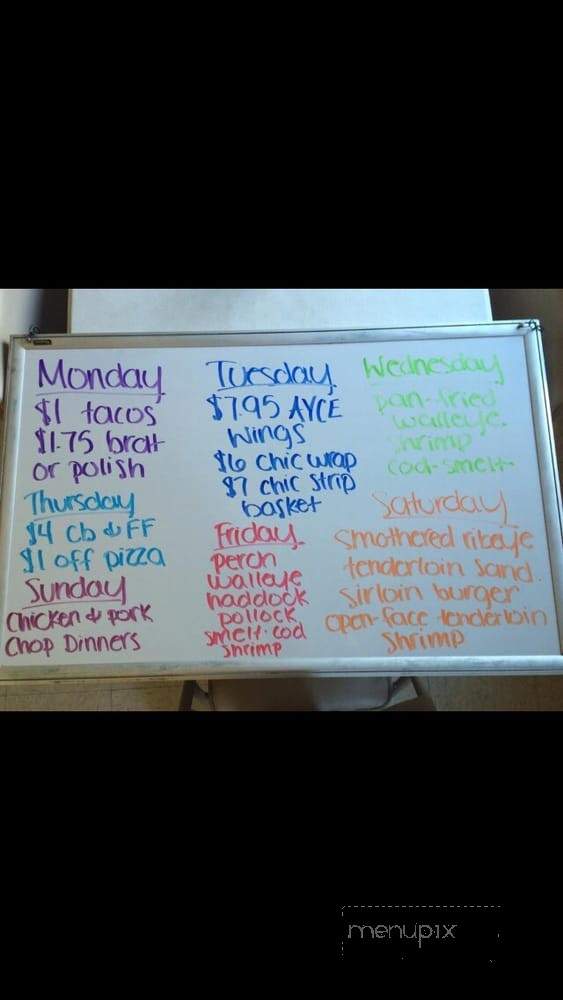 Monday
$1 tacos
$1.75 brat
or polish
Thursday
$4 cb & FF
$1 off pizza
Sunday
Chicken & pork
Chop Dinners
Tuesday
$7.95 AYCE
wings
$6 chic wrap
$7 chic strip
basket
Friday
perch
walleye
haddock
pollock
smelt-cod
shrimp
Wednesday
pan-fried
walleye.
shrimp
cod-smelt-
Saturday
smothered ribeye
tenderloin sand.
sirloin burger
open-face tenderloin
shrimp
menupix